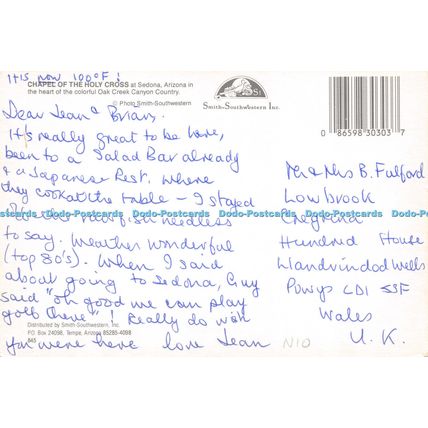 It is now 100°F!
CHAPEL OF THE HOLY CROSS at Sedona, Arizona in
the heart of the colorful Oak Creek Canyon Country.
© Photo Smith-Southwestern
Smith-Southwestern Inc.
0 86598 30303 7
Dear Jean & Brian,
It's really great to be here,
been to a Salad Bar already
& a Japanese Rest. where
they cook at the table – I stayed
off the raw fish needless
to say. Weather wonderful
(top 80's). When I said
about going to Sedona, Guy
said "oh good we can play
golf there"! Really do wish
you were here love Jean
Mr & Mrs B. Fulford
Lowbrook
Hundred House
Llandrindod Wells
Powys LD1 5SF
Wales
U.K.
Dodo-Postcards Dodo-Postcards Dodo-Postcards Dodo-Postcards
Distributed by Smith-Southwestern, Inc.
P.O. Box 24098, Tempe, Arizona 85285-4098
845
N10